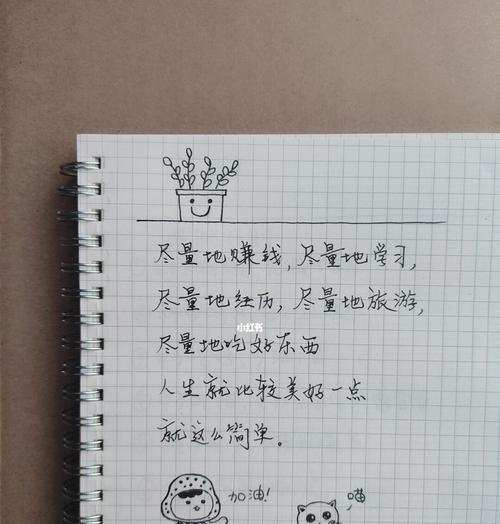 尽量地赚钱,尽量地学习,
尽量地经历,尽量地旅游,
小红书
尽量地吃好东西
人生就比较美好一点
就这么简单。
加油!
喵